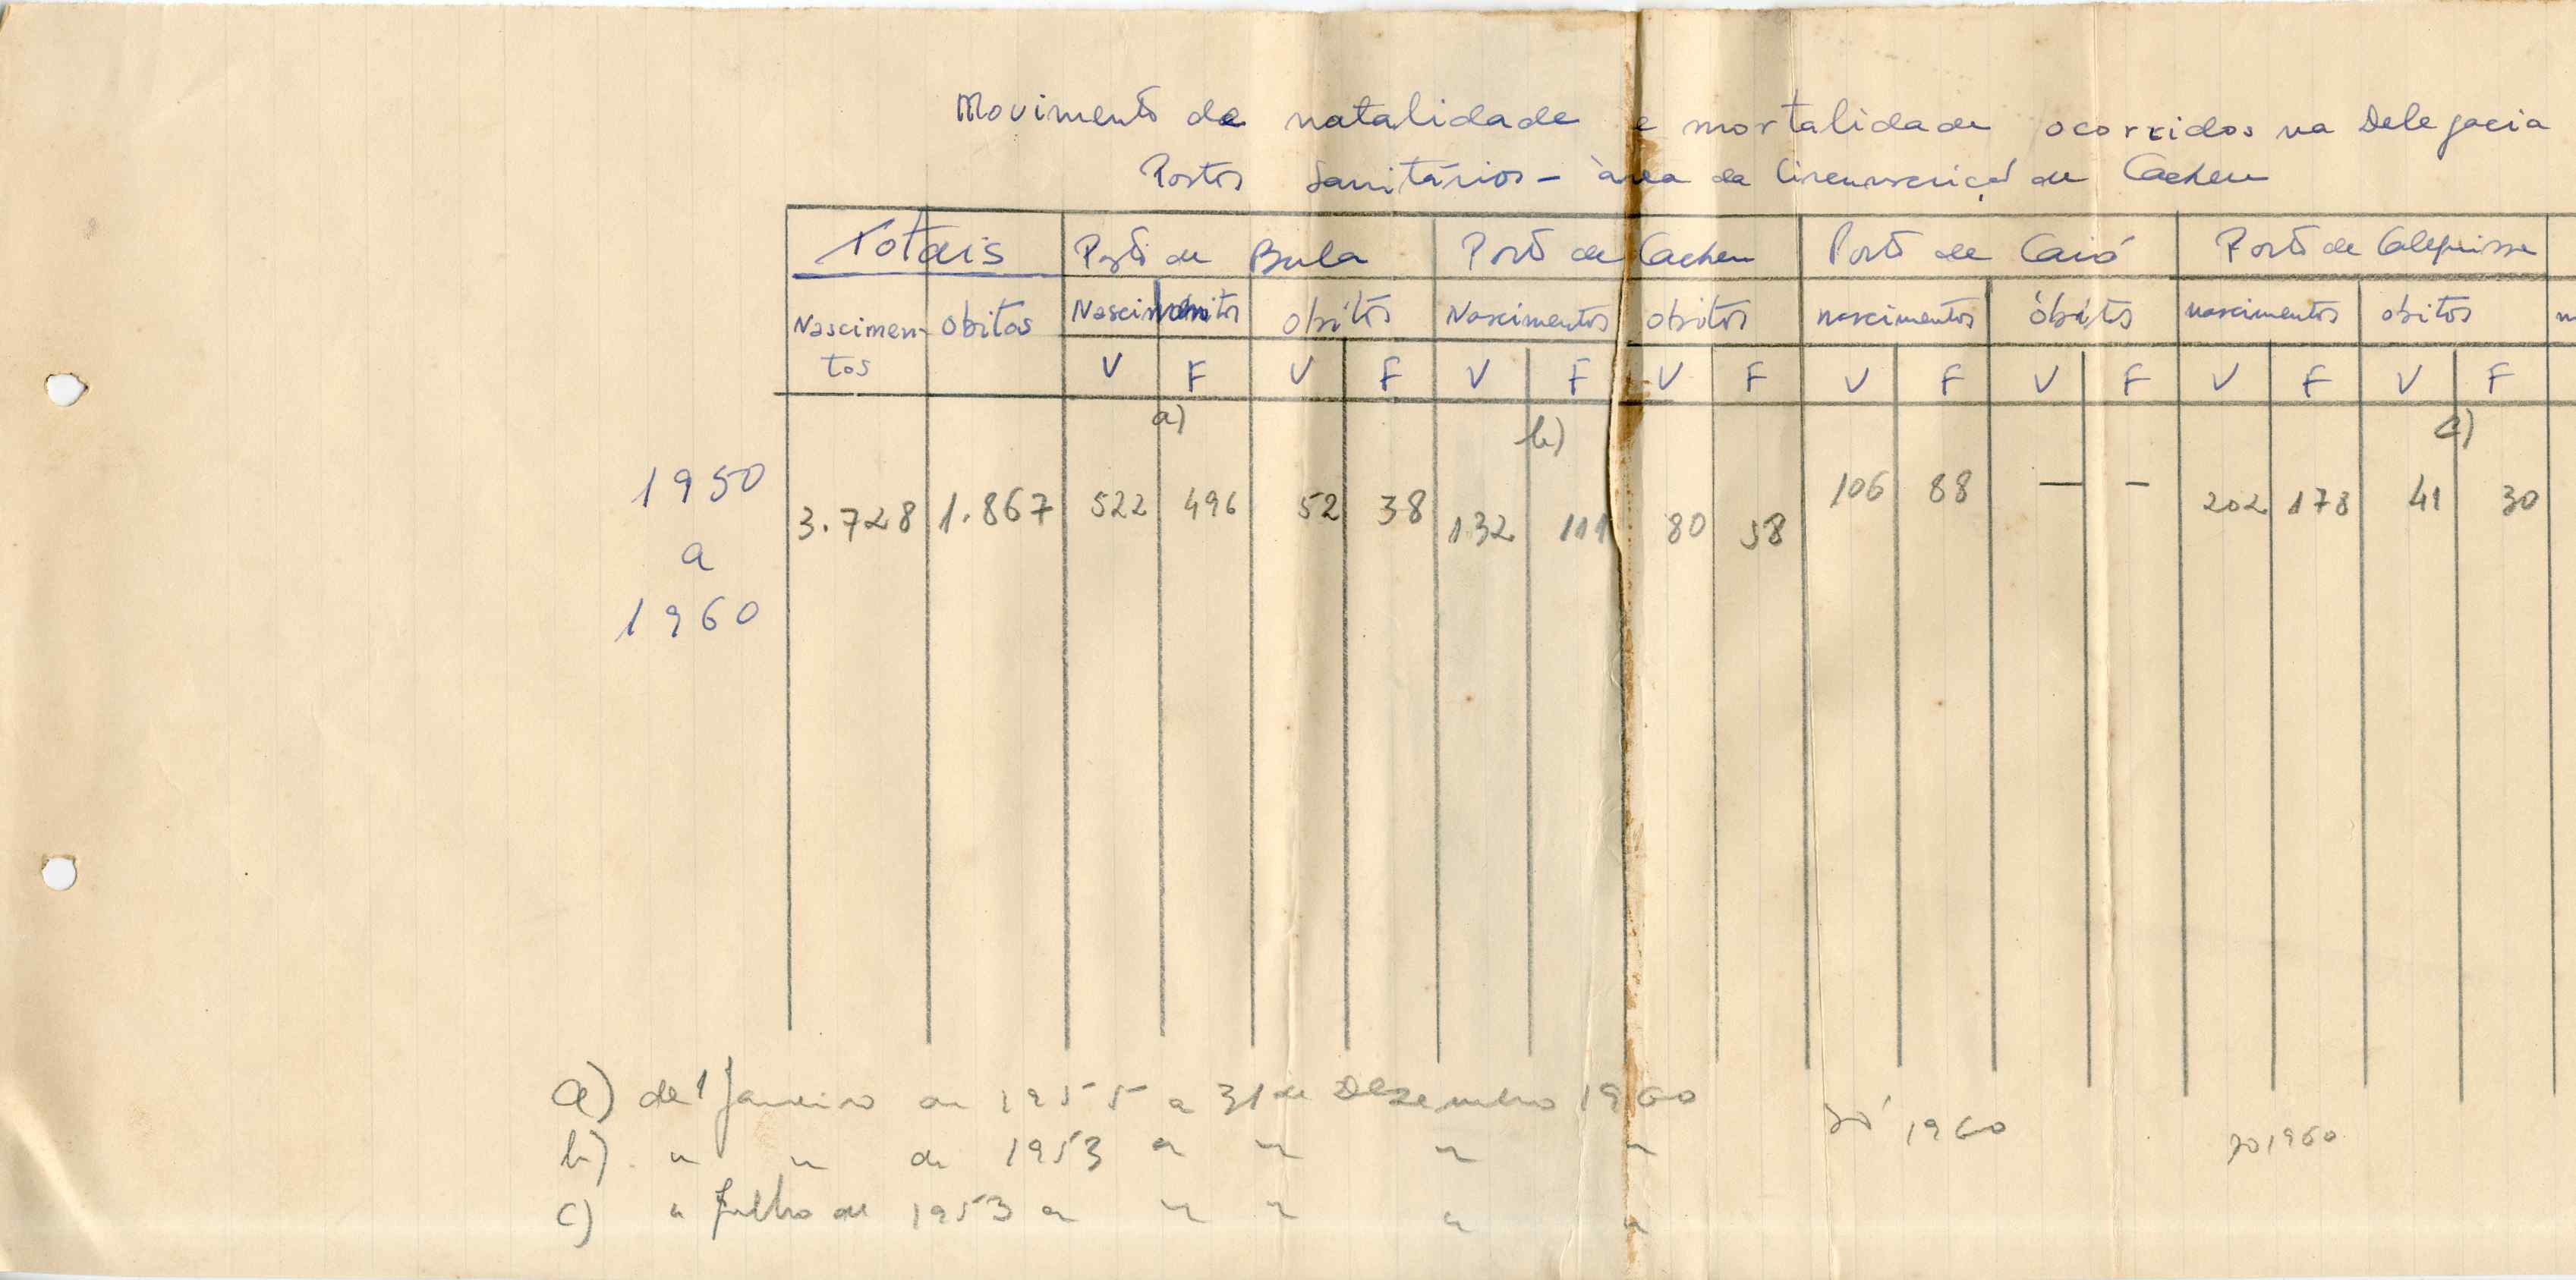 Movimento de natalidade e mortalidade ocorridos na Delegacia
Postos Sanitários - àrea da Circunscriçã de Cacheu
Totais Posto de Bula Posto de Cacheu Posto de Caió Posto de Calequisse
Nascimen- obitos Nascimentos obitos Nascimentos obitos nascimentos óbitos nascimentos obitos
tos V F V F V F V F V F V F V F V F
a) b) c)
1950
3.728 1.867 522 496 52 38 132 111 80 58 106 88 — - 202 178 41 30
a
1960
a) de 1 Janeiro de 1955 a 31 de Dezembro 1960
só 1960 só 1960
b) " " de 1953 a " " "
c) " Julho de 1953 a " " " "